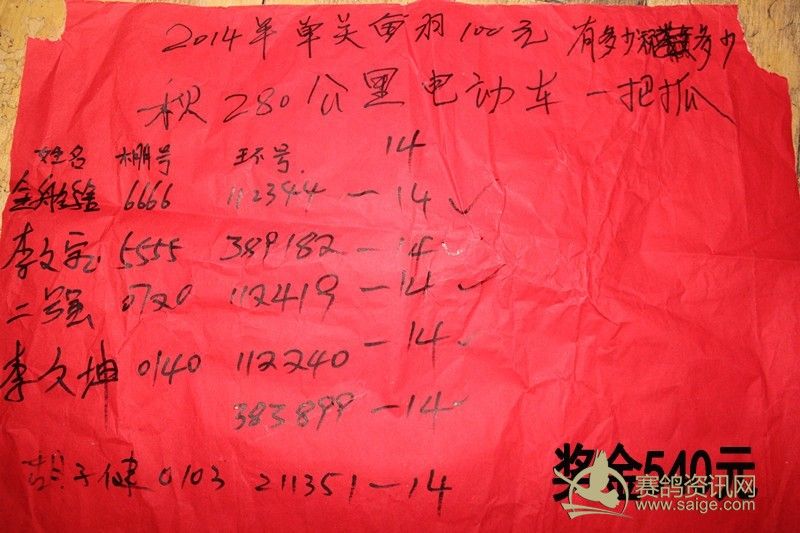 2014年单关每羽100元 有多少 多少
积280公里电动车一把抓
姓名 棚号 环号 14
6666 112344-14 ✓
李文 5555 389182-14 ✓
二强 0720 112419-14 ✓
李久坤 0140 112240-14 ✓
383899-14 ✓
胡子健 0103 211351-14
奖金540元
赛鸽资讯网
www.saige.com